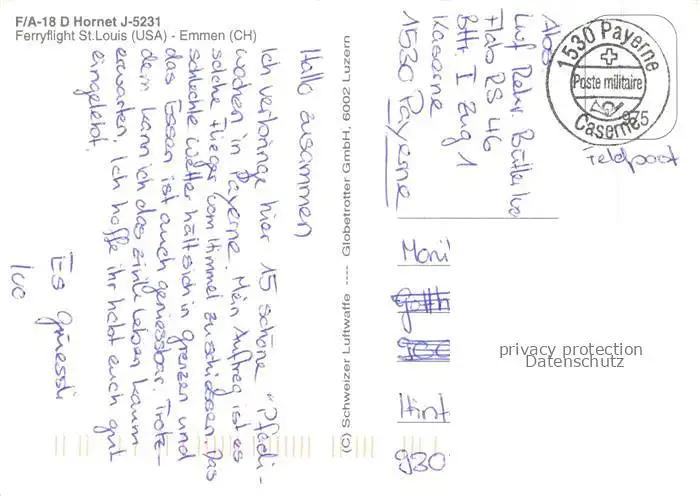 F/A-18 D Hornet J-5231
Ferryflight St.Louis (USA) - Emmen (CH)
Hallo zusammen
Ich verbringe hier 15 schöne "Pfadi-
wochen in Payerne. Mein Auftrag ist es
solche Flieger vom Himmel zu schiessen. Das
schlechte Wetter hält sich in grenzen und
das Essen ist auch geniessbar. Trotz-
dem kann ich das zivile Leben kaum
erwarten. Ich hoffe ihr habt euch gut
eingelebt.
Es Grüessli
Ivo
(C) Schweizer Luftwaffe ---- Globetrotter GmbH, 6002 Luzern
Abs
Rekr.
Ivo
Flab RS 46
Bttr. I Zug 1
Kaserne
1530 Payerne
1530 Payerne
Poste militaire
975
Caserne
Feldpost
Moni
Hint
930
privacy protection
Datenschutz